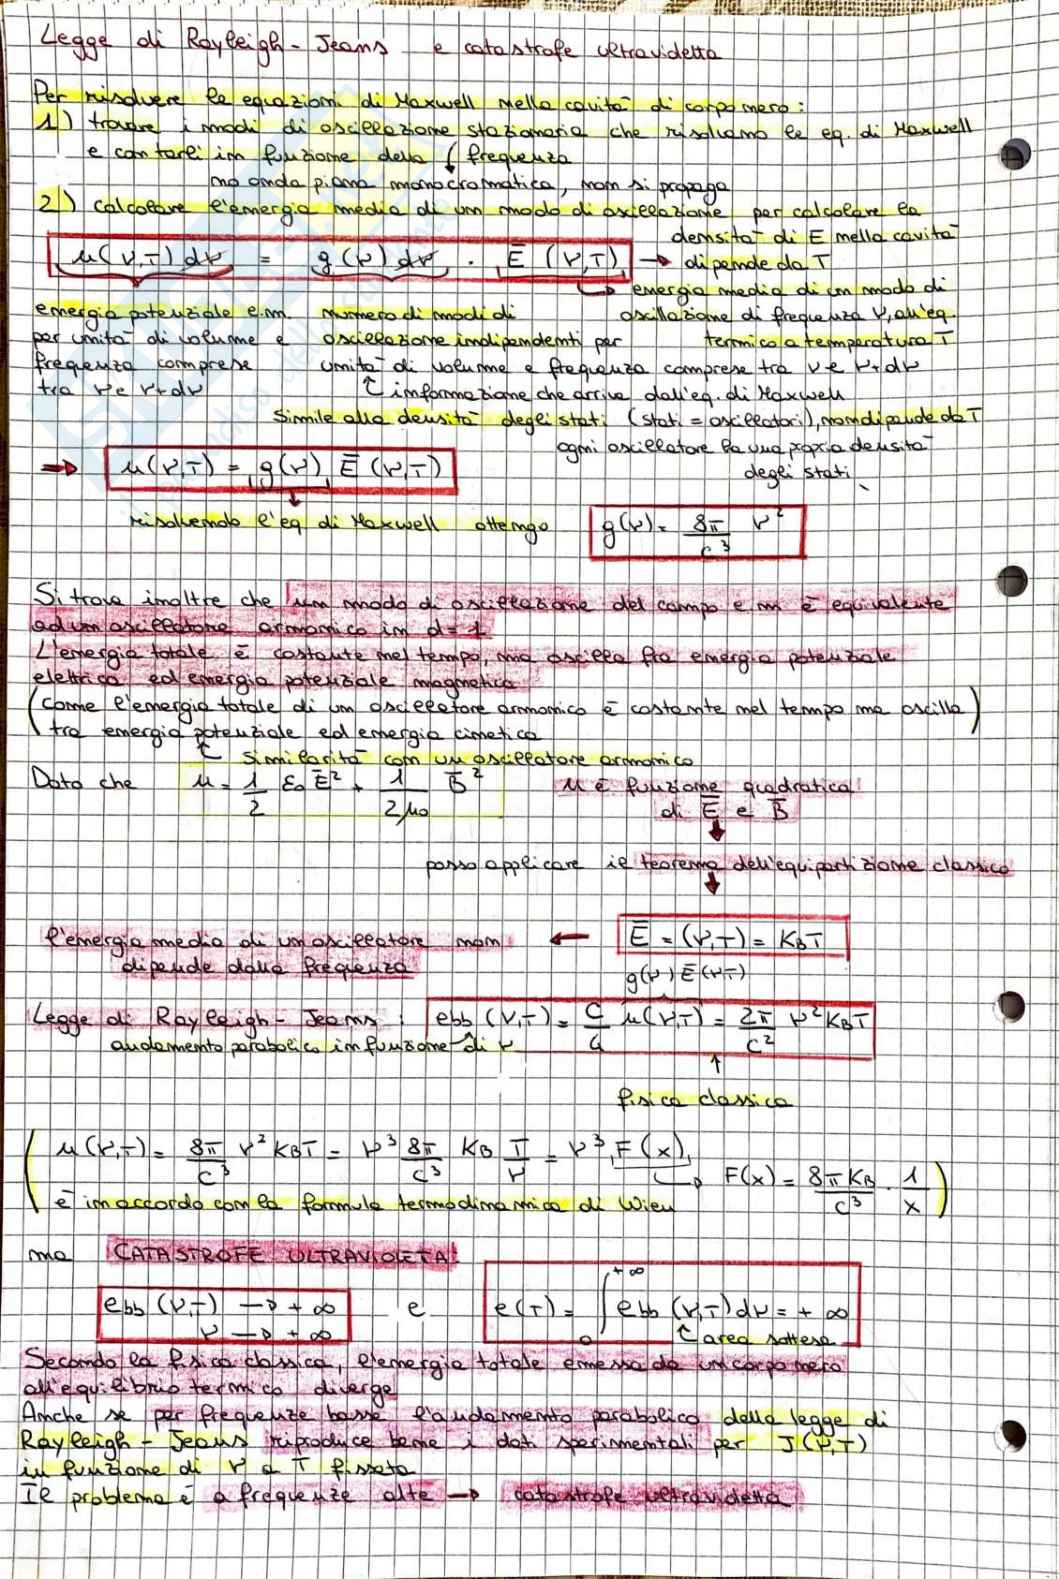 Legge di Rayleigh - Jeans e catastrofe ultravioletta
Per risolvere le equazioni di Maxwell nella cavità di corpo nero:
1) trovare i modi di oscillazione stazionaria che risolvano le eq. di Maxwell
e contarli in funzione della frequenza
no onda piana monocromatica, non si propaga
2) calcolare l'energia media di un modo di oscillazione per calcolare la
densità di E nella cavità
u(ν,T)dν = g(ν)dν · Ē(ν,T) → dipende da T
energia media di un modo di
energia potenziale e.m. numero di modi di oscillazione di frequenza ν, all'eq.
per unità di volume e oscillazione indipendenti per termico a temperatura T
frequenza comprese unità di volume e frequenza comprese tra ν e ν+dν
tra ν e ν+dν informazione che arriva dall'eq. di Maxwell
Simile alla densità degli stati (stati = oscillatori), non dipende da T
ogni oscillatore ha una propria densità
degli stati
⇒ u(ν,T) = g(ν) Ē(ν,T)
risolvendo l'eq di Maxwell ottengo g(ν) = 8π/c³ ν²
Si trova inoltre che un modo di oscillazione del campo e m è equivalente
ad un oscillatore armonico in d=1
L'energia totale è costante nel tempo, ma oscilla fra energia potenziale
elettrica ed energia potenziale magnetica
(come l'energia totale di un oscillatore armonico è costante nel tempo ma oscilla)
tra energia potenziale ed energia cinetica
similarità con un oscillatore armonico
Dato che u = 1/2 ε₀ Ē² + 1/2μ₀ B̄² u è funzione quadratica
di Ē e B̄
posso applicare il teorema dell'equipartizione classico
l'energia media di un oscillatore non ← Ē = (ν,T) = KBT
dipende dalla frequenza
g(ν) Ē(ν,T)
Legge di Rayleigh - Jeans: ebb (ν,T) = c/4 u(ν,T) = 2π/c² ν² KBT
andamento parabolico in funzione di ν
↑
fisica classica
(u(ν,T) = 8π/c³ ν² KBT = ν³ 8π/c³ KB T/ν = ν³ F(x) → F(x) = 8πKB/c³ · 1/x)
è in accordo con la formula termodinamica di Wien
ma CATASTROFE ULTRAVIOLETA:
ebb (ν,T) → +∞ e e(T) = ∫₀^{+∞} ebb (ν,T)dν = +∞
ν → +∞ area sottesa
Secondo la fisica classica, l'energia totale emessa da un corpo nero
all'equilibrio termico diverge
Anche se per frequenze basse l'andamento parabolico della legge di
Rayleigh - Jeans riproduce bene i dati sperimentali per J(ν,T)
in funzione di ν a T fissata
Il problema è a frequenze alte → catastrofe ultravioletta